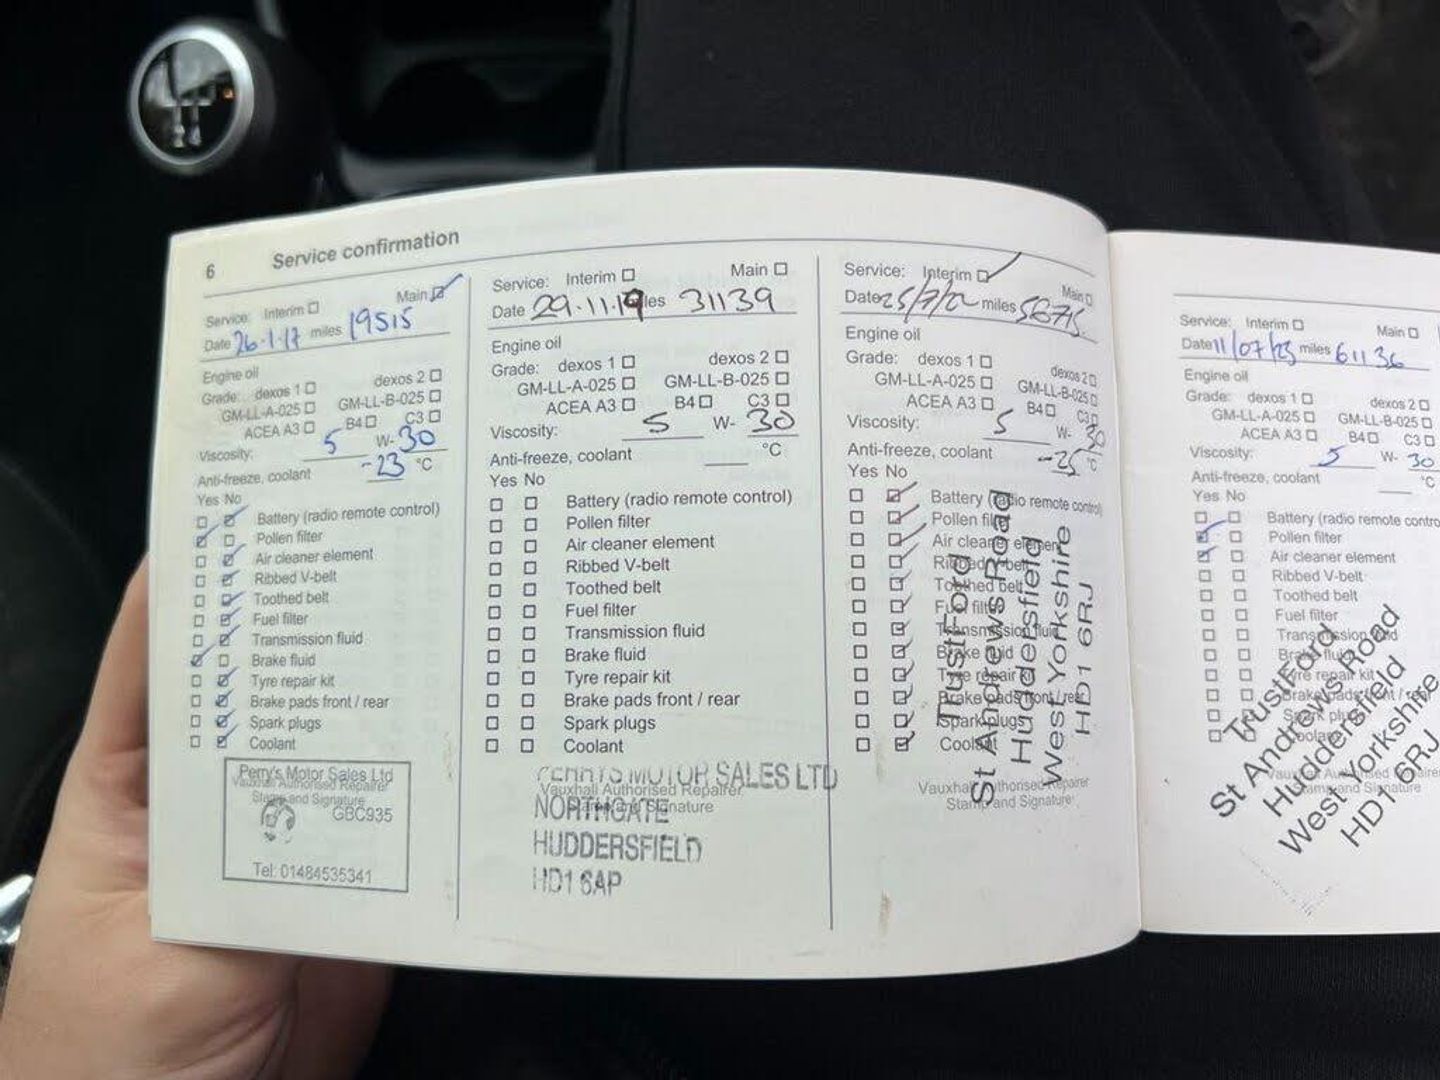 6 Service confirmation
Service: Interim Main
Date 26.1.17 miles 19515
Engine oil
Grade: dexos 1 dexos 2
GM-LL-A-025 GM-LL-B-025
ACEA A3 B4 C3
Viscosity: 5 W-30
Anti-freeze, coolant -23 °C
Yes No
Battery (radio remote control)
Pollen filter
Air cleaner element
Ribbed V-belt
Toothed belt
Fuel filter
Transmission fluid
Brake fluid
Tyre repair kit
Brake pads front / rear
Spark plugs
Coolant
Perry's Motor Sales Ltd
Vauxhall Authorised Repairer
Stamp and Signature
GBC935
Tel: 01484535341
Service: Interim Main
Date 29.11.19 miles 31139
Engine oil
Grade: dexos 1 dexos 2
GM-LL-A-025 GM-LL-B-025
ACEA A3 B4 C3
Viscosity: 5 W-30
Anti-freeze, coolant °C
Yes No
Battery (radio remote control)
Pollen filter
Air cleaner element
Ribbed V-belt
Toothed belt
Fuel filter
Transmission fluid
Brake fluid
Tyre repair kit
Brake pads front / rear
Spark plugs
Coolant
PERRYS MOTOR SALES LTD
Vauxhall Authorised Repairer
NORTHGATE
Stamp and Signature
HUDDERSFIELD
HD1 6AP
Service: Interim Main
Date 25/7/22 miles
Engine oil
Grade: dexos 1 dexos 2
GM-LL-A-025 GM-LL-B-025
ACEA A3 B4 C3
Viscosity: 5 W-30
Anti-freeze, coolant -25 °C
Yes No
Battery (radio remote control)
Pollen filter
Air cleaner element
Ribbed V-belt
Toothed belt
Fuel filter
Transmission fluid
Brake fluid
Tyre repair kit
Brake pads front / rear
Spark plugs
Coolant
Vauxhall Authorised Repairer
Stamp and Signature
TrustFord
St Andrews Road
Huddersfield
West Yorkshire
HD1 6RJ
Service: Interim Main
Date 11/07/23 miles 61136
Engine oil
Grade: dexos 1 dexos 2
GM-LL-A-025 GM-LL-B-025
ACEA A3 B4 C3
Viscosity: 5 W-30
Anti-freeze, coolant °C
Yes No
Battery (radio remote contro
Pollen filter
Air cleaner element
Ribbed V-belt
Toothed belt
Fuel filter
Transmission fluid
Brake fluid
Tyre repair kit
Brake pads front / rear
Spark plugs
Coolant
Vauxhall Authorised Repairer
Stamp and Signature
TrustFord
St Andrews Road
Huddersfield
West Yorkshire
HD1 6RJ